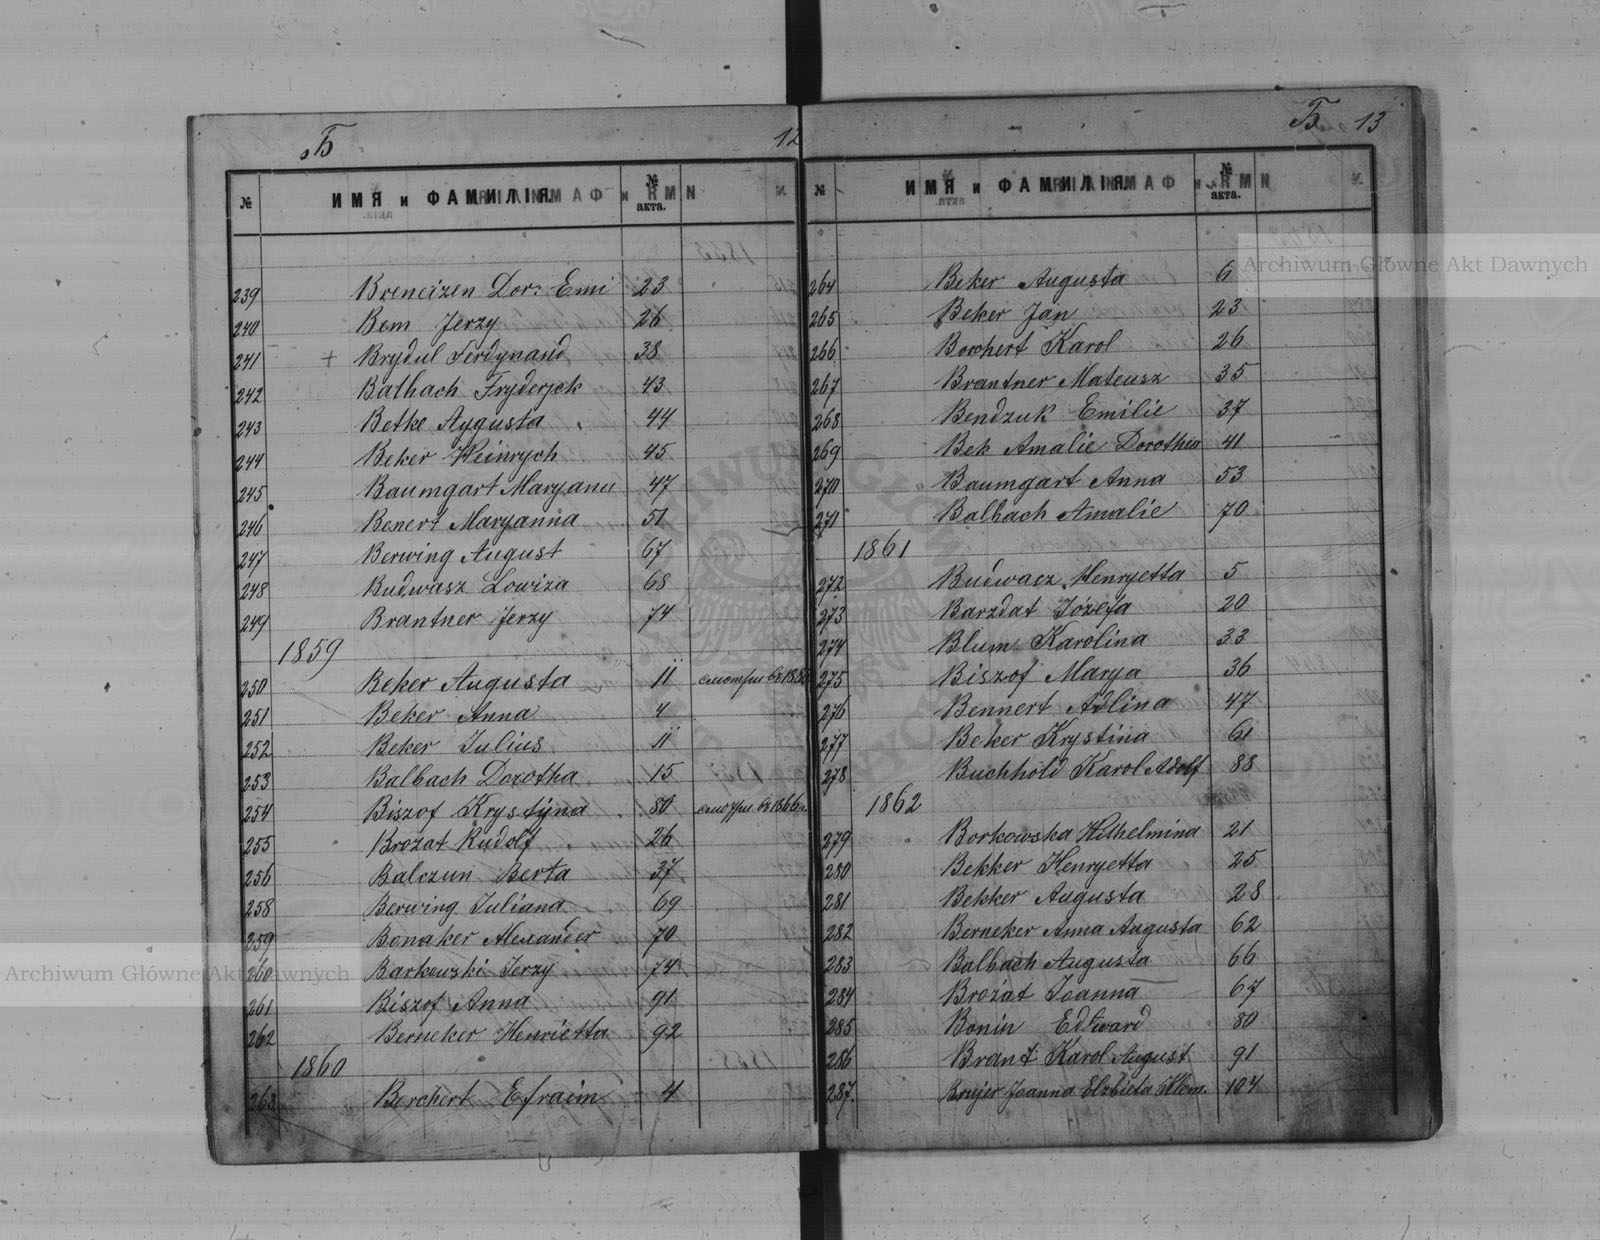 Б 12
№ ИМЯ и ФАМИЛІЯ. № акта.
239 Brencizen Dor: Emi 23
240 Bem Jerzy 26
241 + Brydul Ferdynand 38
242 Balbach Fryderyck 43
243 Betke Aygusta 44
244 Beker Heinrych 45
245 Baumgart Maryana 47
246 Benert Maryanna 51
247 Berwing August 67
248 Budwasz Lowiza 68
249 Brantner Jerzy 74
1859
250 Beker Augusta 11 смотри
251 Beker Anna 4
252 Beker Julius 11
253 Balbach Dorotha 15
254 Biszof Krystyna 80 смотри 1866
255 Brozat Rudolf 26
256 Balczun Berta 37
258 Berwing Juliana 69
259 Bonaker Alexander 70
260 Barkowski Jerzy 74
261 Biszof Anna 91
262 Berneker Henrietta 92
1860
263 Berchert Efraim 4
Б 13
№ ИМЯ и ФАМИЛІЯ. № акта.
264 Beker Augusta 6
265 Beker Jan 23
266 Borchert Karol 26
267 Brantner Mateusz 35
268 Bendzuk Emilie 37
269 Bek Amalie Dorothea 41
270 Baumgart Anna 53
271 Balbach Amalie 70
1861
272 Budwacz Henryetta 5
273 Barzdat Józefa 20
274 Blum Karolina 33
275 Biszof Marya 36
276 Bennert Adlina 47
277 Beker Krystina 61
278 Buchhold Karol Adolf 88
1862
279 Borkowska Wilhelmina 21
280 Bekker Henryetta 25
281 Bekker Augusta 28
282 Berneker Anna Augusta 62
283 Balbach Augusta 66
284 Brozat Joanna 67
285 Bonin Edward 80
286 Brant Karol August 91
287 Brujer Joanna Elzbieta 104
Archiwum Główne Akt Dawnych
Archiwum Główne Akt Dawnych